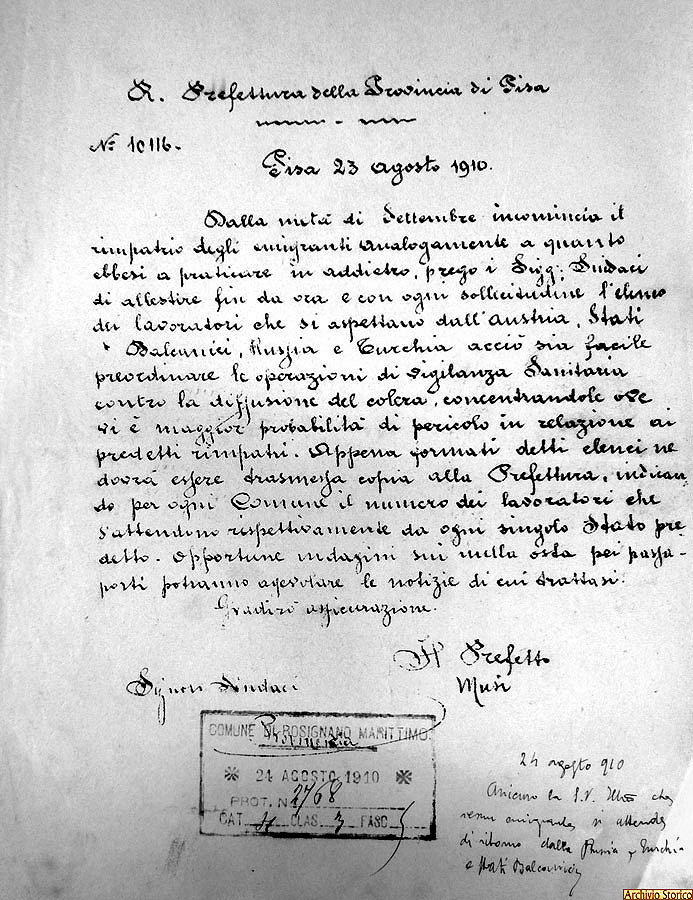 R. Prefettura della Provincia di Pisa
N° 10116.
Pisa 23 agosto 1910.
Dalla metà di Settembre incomincia il
rimpatrio degli emigranti analogamente a quanto
ebbesi a praticare in addietro, prego i Sigg: Sindaci
di allestire fin da ora e con ogni sollecitudine l'elenco
dei lavoratori che si aspettano dall'Austria, Stati
Balcanici, Russia e Turchia acciò sia facile
preordinare le operazioni di vigilanza Sanitaria
contro la diffusione del colera, concentrandole ove
vi è maggior probabilità di pericolo in relazione ai
predetti rimpatri. Appena formati detti elenci ne
dovrà essere trasmessa copia alla Prefettura, indican-
do per ogni Comune il numero dei lavoratori che
s'attendono rispettivamente da ogni singolo Stato pre
detto. Opportune indagini sui nulla osta pei passa-
porti potranno agevolare le notizie di cui trattasi.
Gradirò assicurazione.
Il Prefetto
Musi
Signori Sindaci
Provincia
COMUNE DI ROSIGNANO MARITTIMO
24 AGOSTO 1910
PROT. N. 2768
CAT. 4 CLAS. 3 FASC.
24 agosto 910
Assicuro la S.V. Ill che
nessun emigrante si attende
di ritorno dalla Russia, Turchia
e Stati Balcanici
Archivio Storico